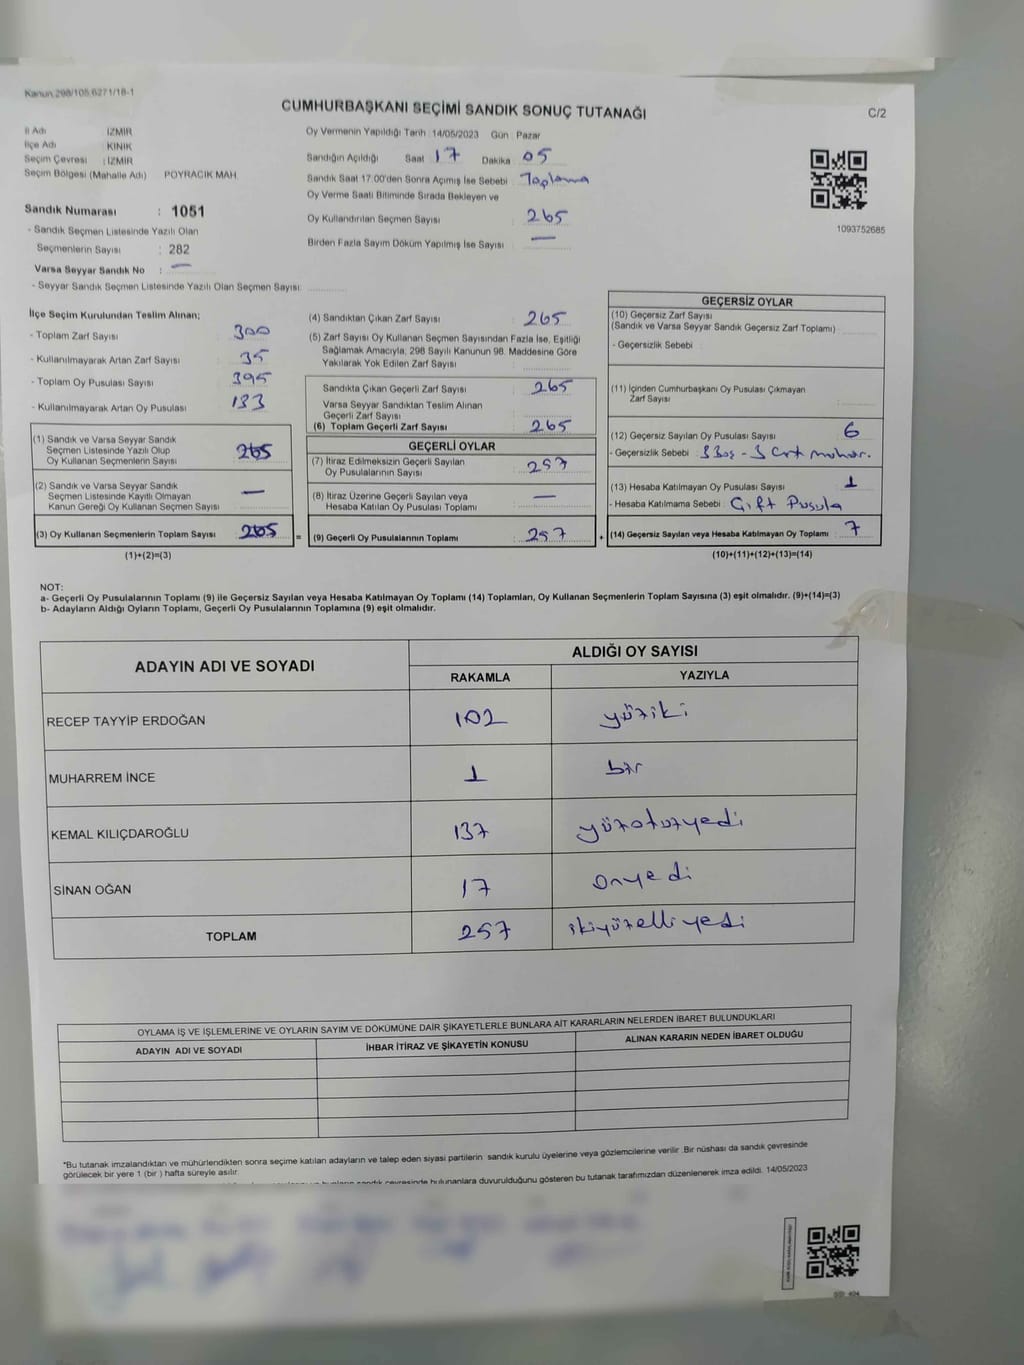 Kanun 298/105,6271/18-1
CUMHURBAŞKANI SEÇİMİ SANDIK SONUÇ TUTANAĞI
C/2
İl Adı : İZMİR
İlçe Adı : KINIK
Seçim Çevresi : İZMİR
Seçim Bölgesi (Mahalle Adı) POYRACIK MAH.
Sandık Numarası : 1051
- Sandık Seçmen Listesinde Yazılı Olan
Seçmenlerin Sayısı : 282
Varsa Seyyar Sandık No : —
- Seyyar Sandık Seçmen Listesinde Yazılı Olan Seçmen Sayısı:
Oy Vermenin Yapıldığı Tarih :14/05/2023 Gün : Pazar
Sandığın Açıldığı Saat 17 Dakika 05
Sandık Saat 17.00'den Sonra Açımış İse Sebebi : Toplama
Oy Verme Saati Bitiminde Sırada Bekleyen ve
Oy Kullandırılan Seçmen Sayısı : 265
Birden Fazla Sayım Döküm Yapılmış İse Sayısı : —
1093752685
İlçe Seçim Kurulundan Teslim Alınan;
- Toplam Zarf Sayısı : 300
- Kullanılmayarak Artan Zarf Sayısı : 35
- Toplam Oy Pusulası Sayısı : 395
- Kullanılmayarak Artan Oy Pusulası : 133
(1) Sandık ve Varsa Seyyar Sandık
Seçmen Listesinde Yazılı Olup
Oy Kullanan Seçmenlerin Sayısı : 265
(2) Sandık ve Varsa Seyyar Sandık
Seçmen Listesinde Kayıtlı Olmayan
Kanun Gereği Oy Kullanan Seçmen Sayısı : —
(3) Oy Kullanan Seçmenlerin Toplam Sayısı : 265
(1)+(2)=(3)
(4) Sandıktan Çıkan Zarf Sayısı : 265
(5) Zarf Sayısı Oy Kullanan Seçmen Sayısından Fazla İse, Eşitliği
Sağlamak Amacıyla, 298 Sayılı Kanunun 98. Maddesine Göre
Yakılarak Yok Edilen Zarf Sayısı :
Sandıkta Çıkan Geçerli Zarf Sayısı : 265
Varsa Seyyar Sandıktan Teslim Alınan
Geçerli Zarf Sayısı :
(6) Toplam Geçerli Zarf Sayısı : 265
GEÇERLİ OYLAR
(7) İtiraz Edilmeksizin Geçerli Sayılan
Oy Pusulalarının Sayısı : 257
(8) İtiraz Üzerine Geçerli Sayılan veya
Hesaba Katılan Oy Pusulası Toplamı : —
= (9) Geçerli Oy Pusulalarının Toplamı : 257
GEÇERSİZ OYLAR
(10) Geçersiz Zarf Sayısı
(Sandık ve Varsa Seyyar Sandık Geçersiz Zarf Toplamı) :
- Geçersizlik Sebebi :
(11) İçinden Cumhurbaşkanı Oy Pusulası Çıkmayan
Zarf Sayısı :
(12) Geçersiz Sayılan Oy Pusulası Sayısı : 6
- Geçersizlik Sebebi : 3 Boş - 3
(13) Hesaba Katılmayan Oy Pusulası Sayısı : 1
- Hesaba Katılmama Sebebi : Çift Pusula
+ (14) Geçersiz Sayılan veya Hesaba Katılmayan Oy Toplamı : 7
(10)+(11)+(12)+(13)=(14)
NOT:
a- Geçerli Oy Pusulalarının Toplamı (9) ile Geçersiz Sayılan veya Hesaba Katılmayan Oy Toplamı (14) Toplamları, Oy Kullanan Seçmenlerin Toplam Sayısına (3) eşit olmalıdır. (9)+(14)=(3)
b- Adayların Aldığı Oyların Toplamı, Geçerli Oy Pusulalarının Toplamına (9) eşit olmalıdır.
ADAYIN ADI VE SOYADI
ALDIĞI OY SAYISI
RAKAMLA YAZIYLA
RECEP TAYYİP ERDOĞAN 102 yüziki
MUHARREM İNCE 1 bir
KEMAL KILIÇDAROĞLU 137 yüzotuzyedi
SİNAN OĞAN 17 onyedi
TOPLAM 257 ikiyüzelliyedi
OYLAMA İŞ VE İŞLEMLERİNE VE OYLARIN SAYIM VE DÖKÜMÜNE DAİR ŞİKAYETLERLE BUNLARA AİT KARARLARIN NELERDEN İBARET BULUNDUKLARI
ADAYIN ADI VE SOYADI İHBAR İTİRAZ VE ŞİKAYETİN KONUSU ALINAN KARARIN NEDEN İBARET OLDUĞU
*Bu tutanak imzalandıktan ve mühürlendikten sonra seçime katılan adayların ve talep eden siyasi partilerin sandık kurulu üyelerine veya gözlemcilerine verilir. Bir nüshası da sandık çevresinde
görülecek bir yere 1 (bir ) hafta süreyle asılır.
sandık çevresinde bulunanlara duyurulduğunu gösteren bu tutanak tarafımızdan düzenlenerek imza edildi. 14/05/2023